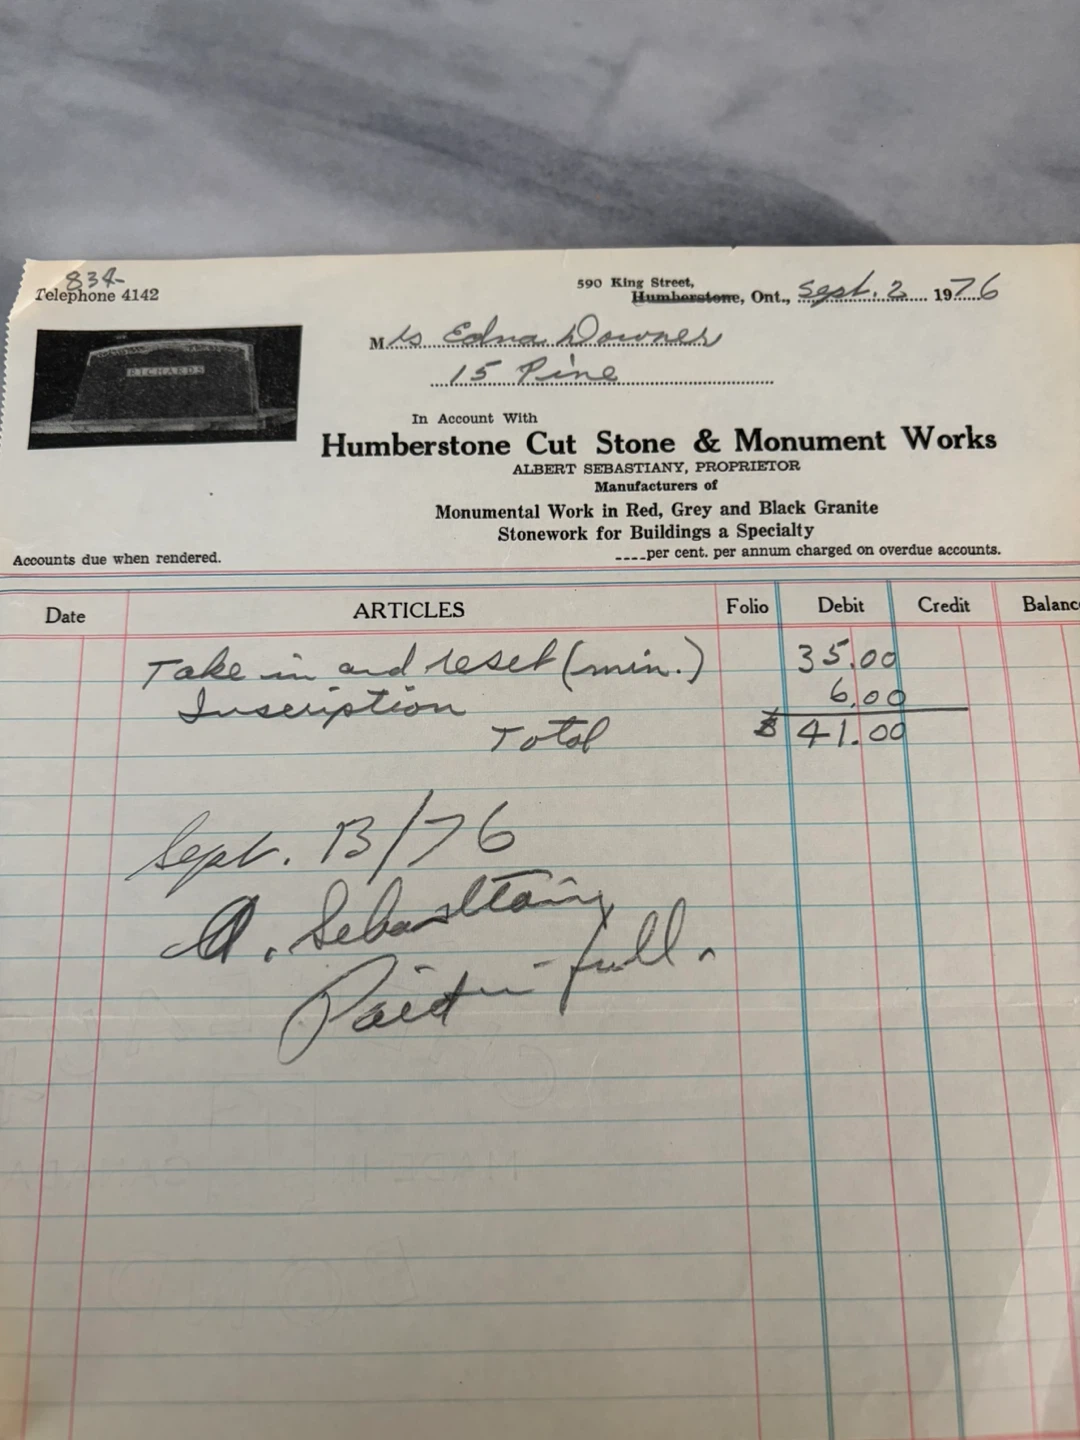 834-
Telephone 4142
590 King Street,
Humberstone, Ont., Sept. 2 1976
Mrs Edna Downer
15 Pine
RICHARDS
In Account With
Humberstone Cut Stone & Monument Works
ALBERT SEBASTIANY, PROPRIETOR
Manufacturers of
Monumental Work in Red, Grey and Black Granite
Stonework for Buildings a Specialty
Accounts due when rendered.
____per cent. per annum charged on overdue accounts.
Date ARTICLES Folio Debit Credit Balanc
Take in and reset (min.) 35.00
Inscription 6.00
Total $ 41.00
Sept. 13/76
A. Sebastiany
Paid in full.
MADE IN CANADA